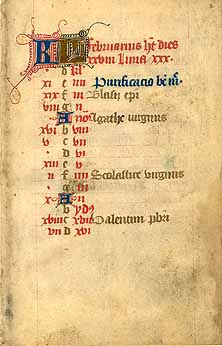 KL Februarius hȝ dies
xxviii Luna xxx.
d kl
xi e iiii Purificacio be m.
xix f iii Blasii epi
viii g ii
A no Agathe virginis
xvi b viii
v c vii
d vi
xiii e v
ii f iiii Scolastice virginis
g iii
x A ii
b yd9
xviii c xvi Valentini pbri
vii d xv